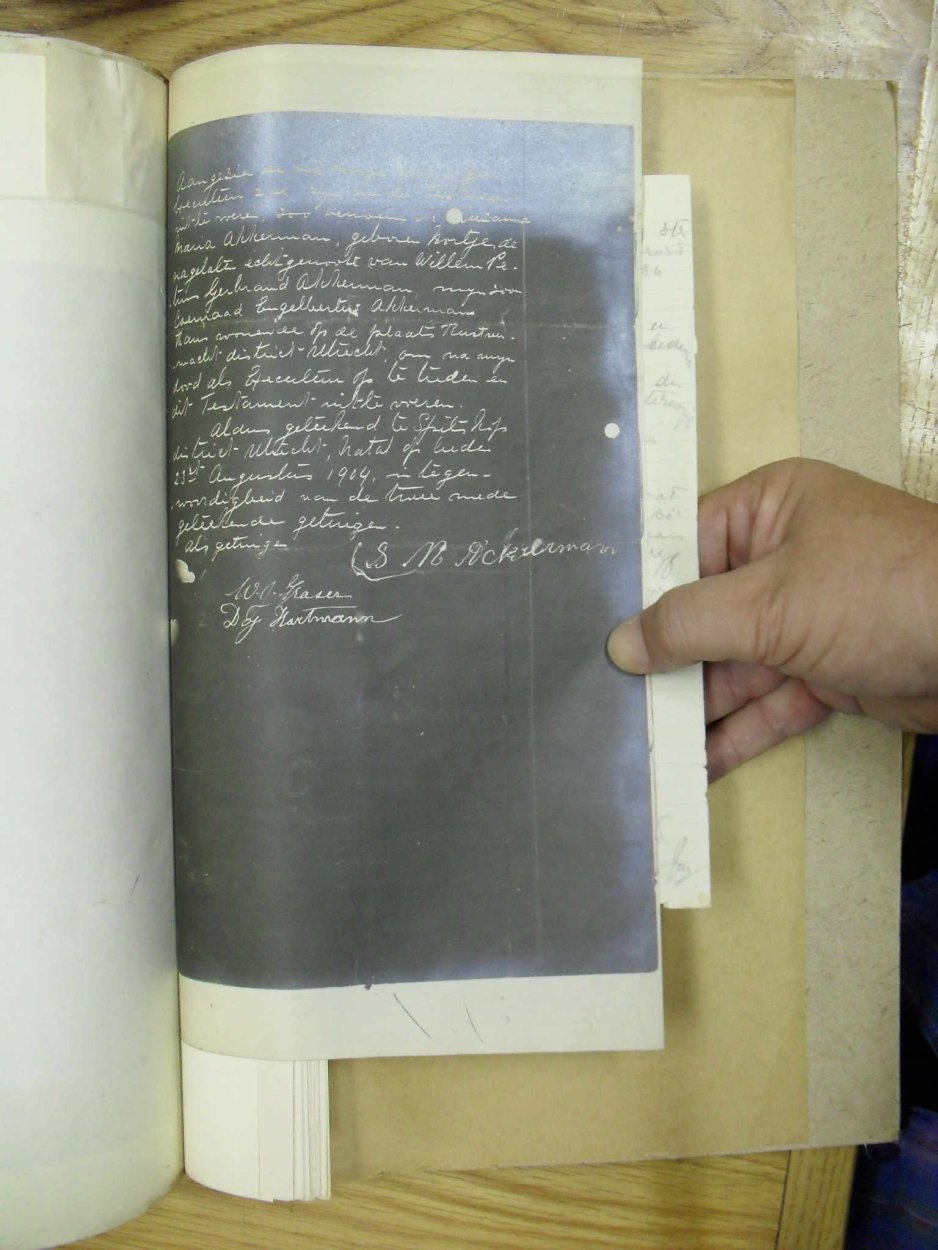 Aangezien
Executeur
uit te voeren, zoo benoem ik
Maria Akkerman, geboren Kortje, de
nagelaten echtgenoote van Willem Pe-
trus Gerbrand Akkerman mijn zoon
Coenraad Engelbertus Akkerman
thans wonende op de plaats Rustver-
wacht district Utrecht, om na mijn
dood als Executeur op te treden en
dit Testament uit te voeren.
Aldus geteekend te Spits Kop
district Utrecht, Natal op heden
23st Augustus 1904, in tegen-
woordigheid van de twee mede
geteekende getuigen.
als getuige
S M Ackerman
W. J. Fraser
D J Hartmann